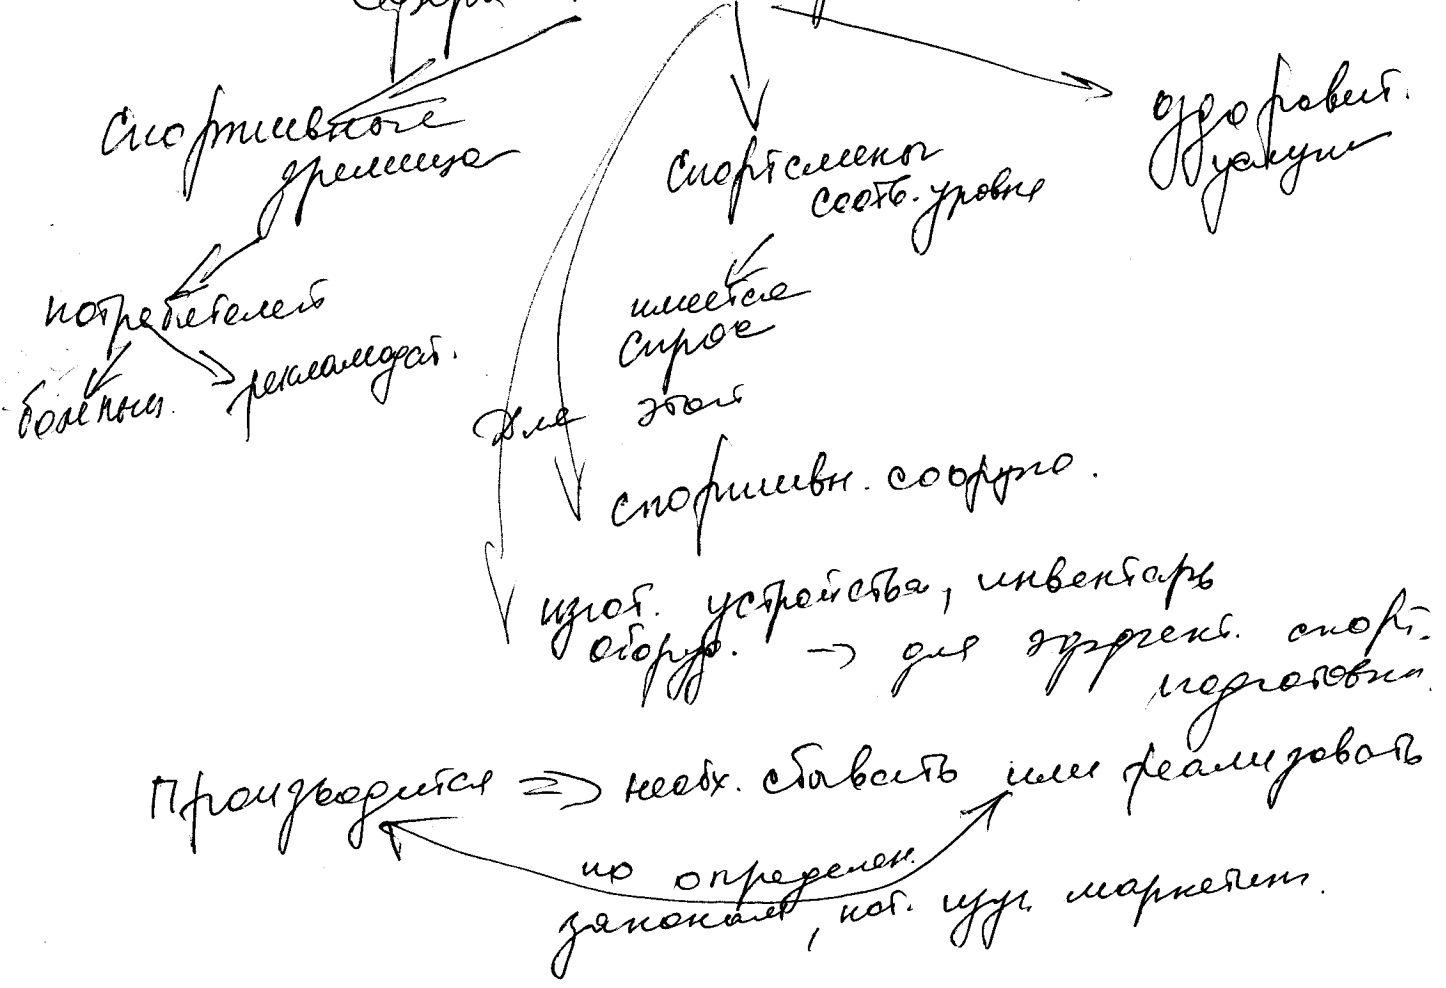 Сфера
Спортивные
зрелища
Спортсмены
соотв. уровня
оздоровит.
услуги
потребителей
болельщ.
рекламодат.
имеется
спрос
Для этой
спортивн. сооруж.
изгот. устройства, инвентарь
оборуд. → для эффект. спорт.
подготовки
Производится ⇒ необх. сбывать или реализовать
по определен.
законам, кот. изуч. маркетинг.